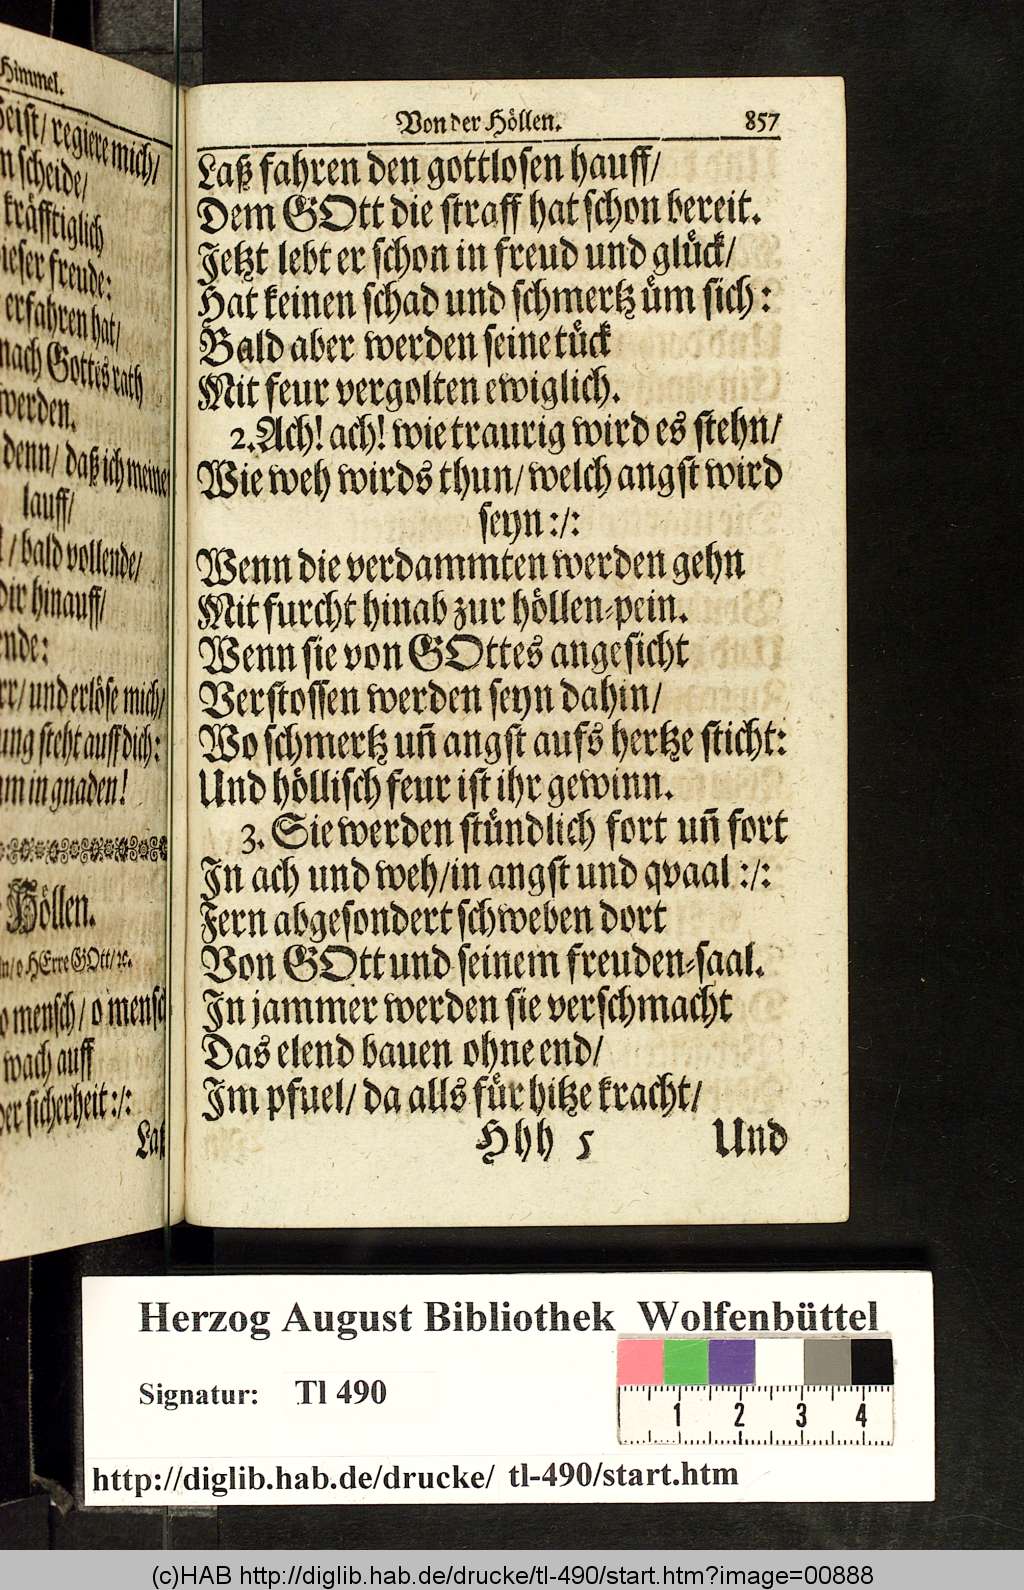 Himmel.
Geist/ regiere mich/
scheide/
kräfftiglich
dieser freude:
erfahren hat/
nach Gottes rath
werden.
denn/ daß ich meinen
lauff/
/ bald vollende/
dir hinauff/
ende:
und erlöse mich/
steht auff dich:
in gnaden!
Höllen.
o HErre GOtt/ ꝛc.
o mensch/ o mensch
wach auff
der sicherheit :/:
Laß
Von der Höllen. 857
Laß fahren den gottlosen hauff/
Dem GOtt die straff hat schon bereit.
Jetzt lebt er schon in freud und glück/
Hat keinen schad und schmertz üm sich:
Bald aber werden seine tück
Mit feur vergolten ewiglich.
2. Ach! ach! wie traurig wird es stehn/
Wie weh wirds thun/ welch angst wird
seyn :/:
Wenn die verdammten werden gehn
Mit furcht hinab zur höllen-pein.
Wenn sie von GOttes angesicht
Verstossen werden seyn dahin/
Wo schmertz uñ angst aufs hertze sticht:
Und höllisch feur ist ihr gewinn.
3. Sie werden stündlich fort uñ fort
In ach und weh/ in angst und qvaal :/:
Fern abgesondert schweben dort
Von GOtt und seinem freuden-saal.
In jammer werden sie verschmacht
Das elend bauen ohne end/
Im pfuel/ da alls für hitze kracht/
Hhh 5 Und
Herzog August Bibliothek Wolfenbüttel
Signatur: Tl 490
1 2 3 4
http://diglib.hab.de/drucke/ tl-490/start.htm
(c)HAB http://diglib.hab.de/drucke/tl-490/start.htm?image=00888